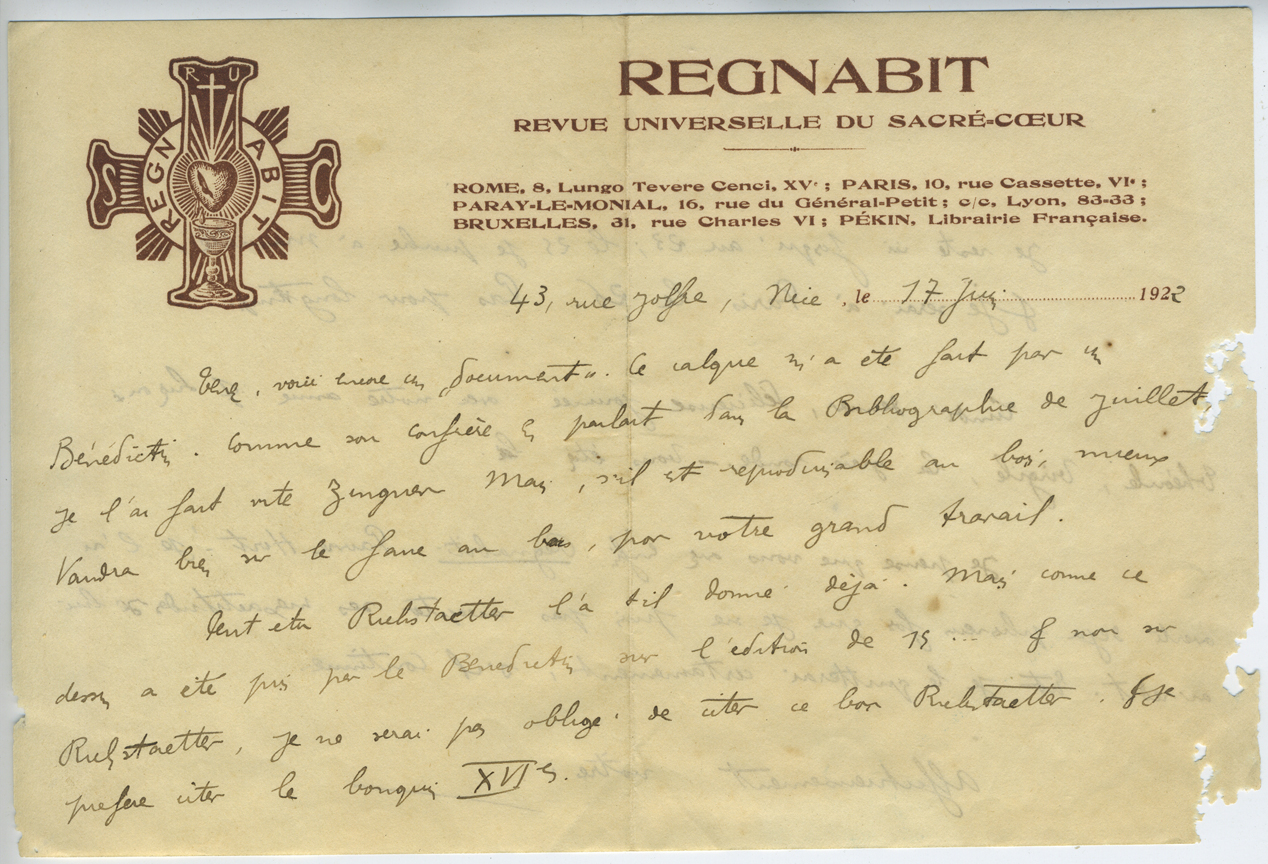 R U
S REGNABIT C
REGNABIT
REVUE UNIVERSELLE DU SACRÉ-CŒUR
ROME, 8, Lungo Tevere Cenci, XVe ; PARIS, 10, rue Cassette, VIe ;
PARAY-LE-MONIAL, 16, rue du Général-Petit ; c/c, Lyon, 83-33 ;
BRUXELLES, 31, rue Charles VI ; PÉKIN, Librairie Française.
43, rue Joffre, Nice, le 17 Juin 1922
voici encore un "document". Ce calque m'a été fait par un
Bénédictin. Comme son confrère en parlait dans la Bibliographie de juillet,
je l'ai fait vite zinguer. Mais, s'il est reproduisable au bois, mieux
Vaudra bien sûr le faire au bois, por votre grand travail.
Peut etre Richstaetter l'a t il donné déjà. Mais come ce
dessin a été pris par le Bénédictin sur l'édition de 15... & non sur
Richstaetter, je ne serai pas obligé de citer ce bon Richstaetter. & je
préfère citer le bouquin XVIe.